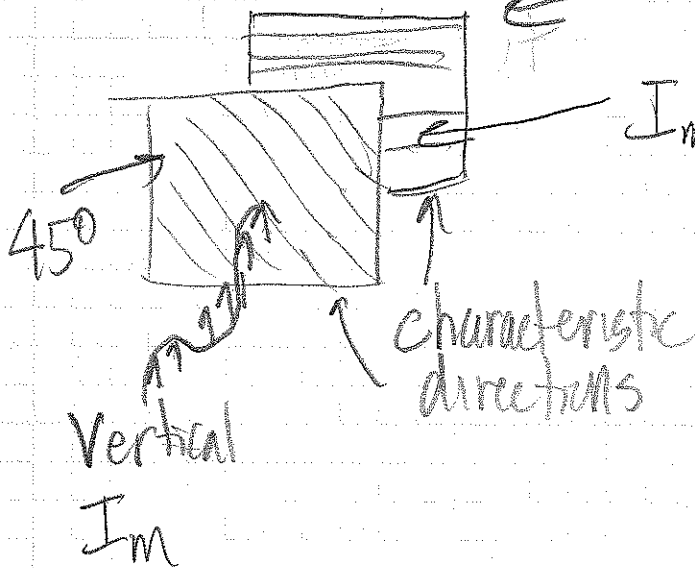 I
45°
characteristic
directions
Vertical
I_m